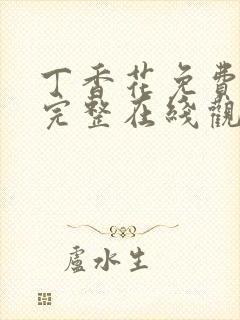 丁香花免費
完整在綫觀
盧水生